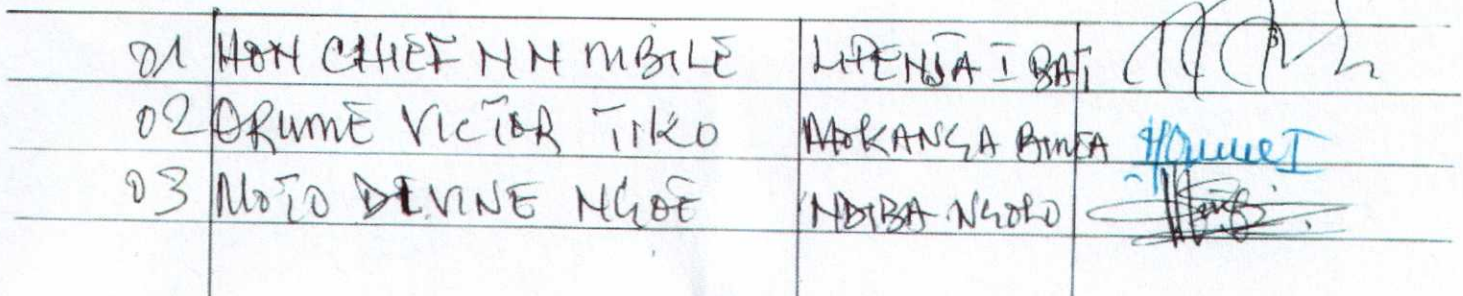 01 HON CHIEF N N MBILE LIPENJA I BATI
02 ORUME VICTOR TIKO MOKANGA BIMIA
03 MOTO DEVINE NGOE NDIBA NGOLO